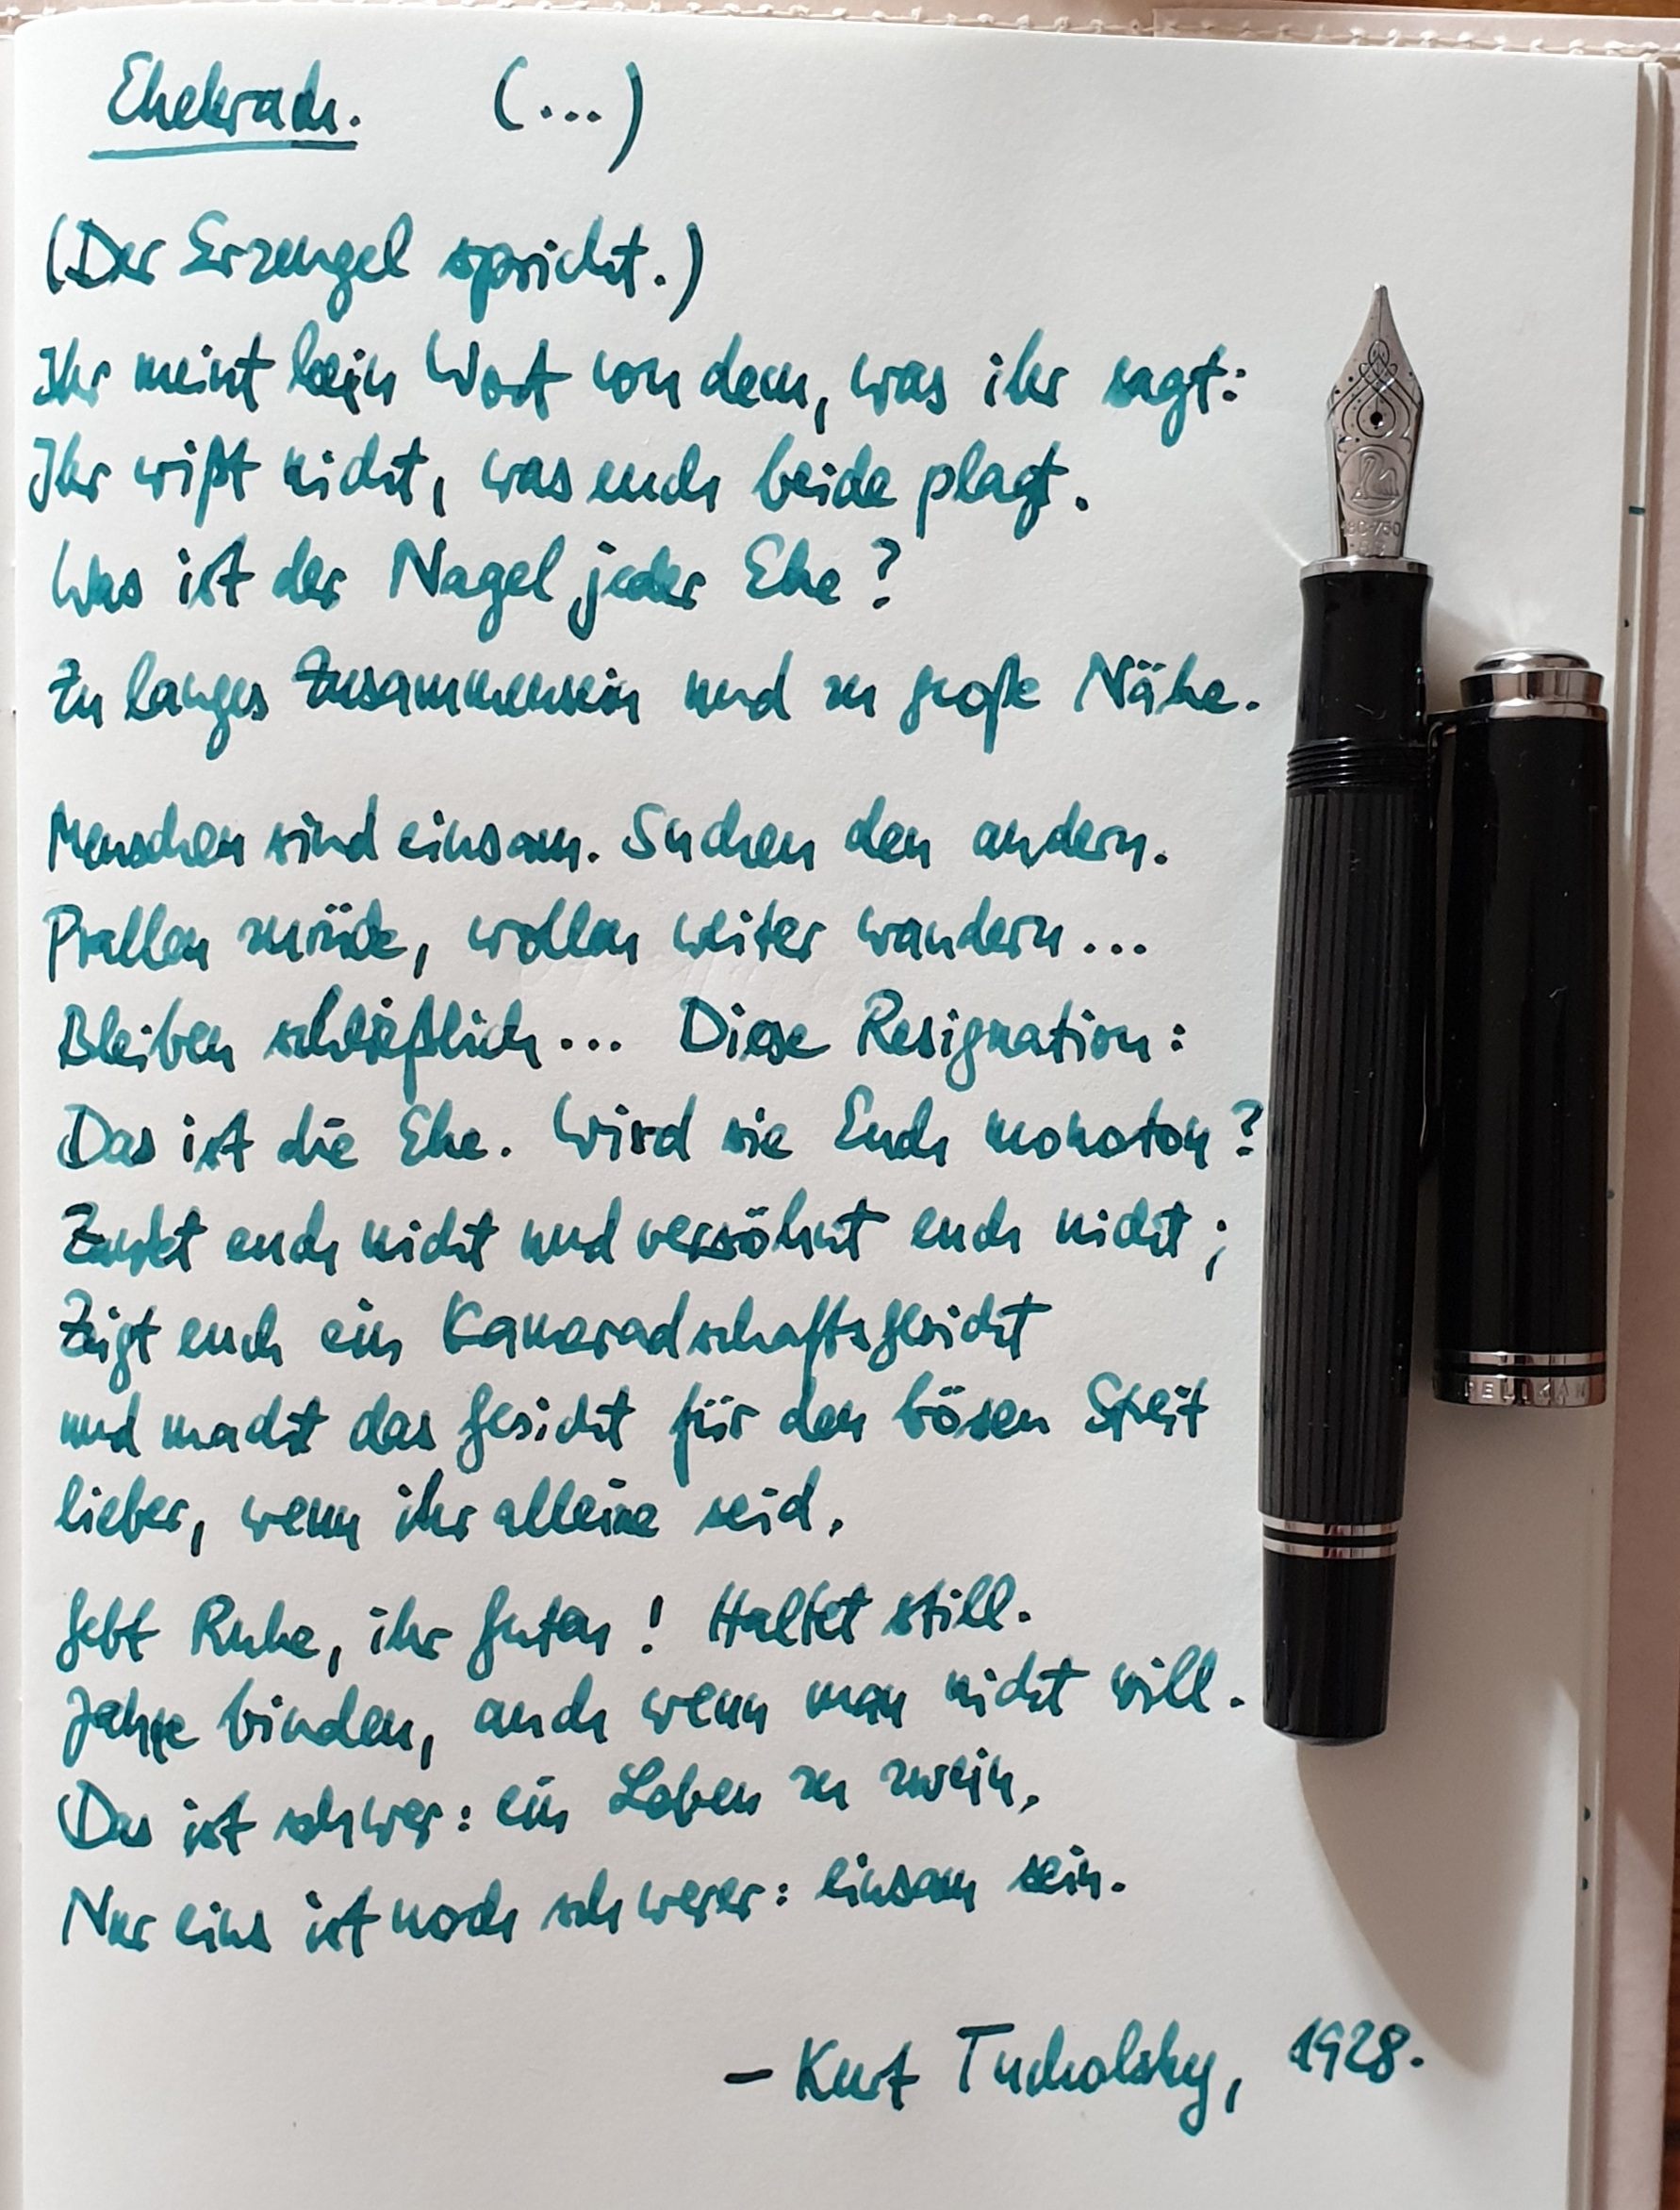 Ehekrach. (...)
(Der Erzengel spricht.)
Ihr meint kein Wort von dem, was ihr sagt:
Ihr wißt nicht, was euch beide plagt.
Was ist der Nagel jeder Ehe?
Zu langes Zusammensein und zu große Nähe.
Menschen sind einsam. Suchen den andern.
Prallen zurück, wollen weiter wandern...
Bleiben schließlich... Diese Resignation:
Das ist die Ehe. Wird sie Euch monoton?
Zankt euch nicht und versöhnt euch nicht;
Zeigt euch ein Kameradschaftsgesicht
und macht das Gesicht für den bösen Streit
lieber, wenn ihr alleine seid.
Gebt Ruhe, ihr Guten! Haltet still.
Jahre binden, auch wenn man nicht will.
Das ist schwer: ein Leben zu zwein.
Nur eins ist noch schwerer: einsam sein.
– Kurt Tucholsky, 1928.
PELIKAN